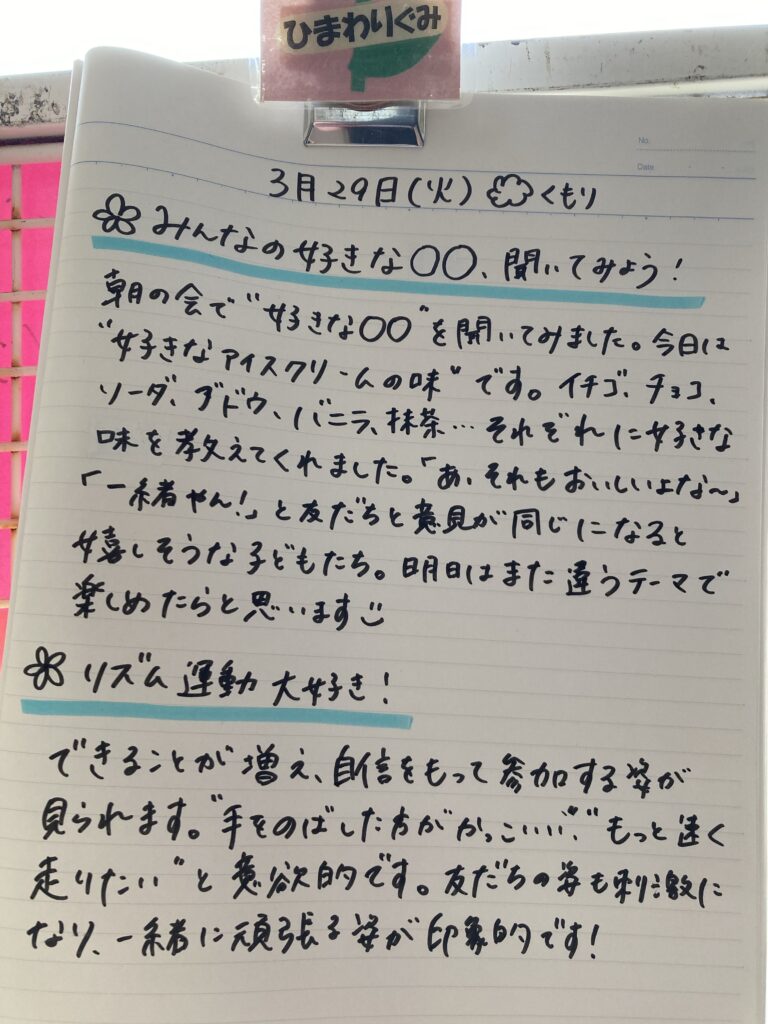 ひまわりぐみ
No.
Date
3月29日(火) くもり
みんなの好きな〇〇、聞いてみよう!
朝の会で"好きな〇〇"を聞いてみました。今日は
"好きなアイスクリームの味"です。イチゴ、チョコ、
ソーダ、ブドウ、バニラ、抹茶…それぞれに好きな
味を教えてくれました。「あ、それもおいしいよな〜」
「一緒やん!」と友だちと意見が同じになると
嬉しそうな子どもたち。明日はまた違うテーマで
楽しめたらと思います
リズム運動大好き!
できることが増え、自信をもって参加する姿が
見られます。"手をのばした方がかっこいい""もっと速く
走りたい"と意欲的です。友だちの姿も刺激に
なり、一緒に頑張る姿が印象的です!